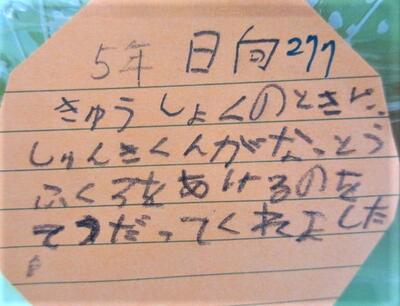 5年 日向 277
きゅうしょくのときに、
しゅんきくんがなっとう
ふくろをあけるのを
てつだってくれました